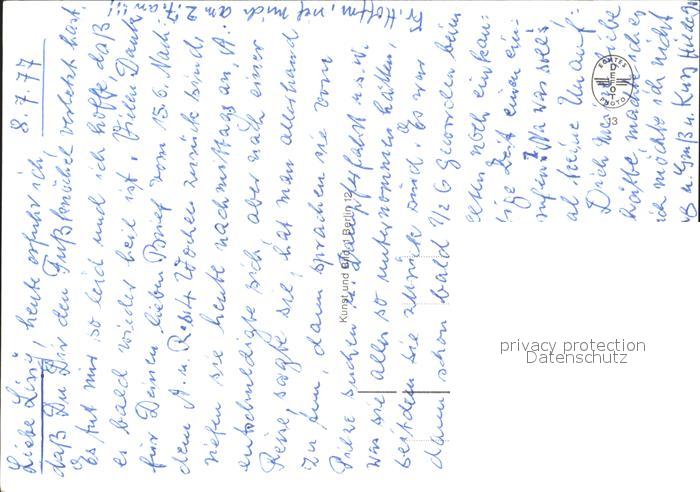 8.7.77
Liebe Lissi, heute erfuhr ich,
daß Du Dir den Fußknöchel verletzt hast.
Es tut mir so leid und ich hoffe, daß
er bald wieder heil ist. Vielen Dank
für Deinen lieben Brief vom 15.6. Nach-
dem A. u. R. 4 Wochen zurück sind,
riefen sie heute nachmittags an. A.
entschuldigte sich, aber nach einer
Reise, sagte sie, hat man allerhand
zu tun, dann sprachen sie vom
Pilze suchen u. gefahren u.s.w.
was sie alles so unternommen hätten,
seitdem sie zurück sind. Es war
dann schon bald 1/2 6 geworden beim
noch einkau-
Zeit einen ein-
Na was solls
al keine Un auf:
Dich
hätte,
ich möchte ich nicht
u. Gruß u. Kuss
Fr. Hoffm. rief mich am 2.7. an!!!
Kunst und Bild, Berlin 12
ECHTES
FOTO
PHOTO
13
privacy protection
Datenschutz